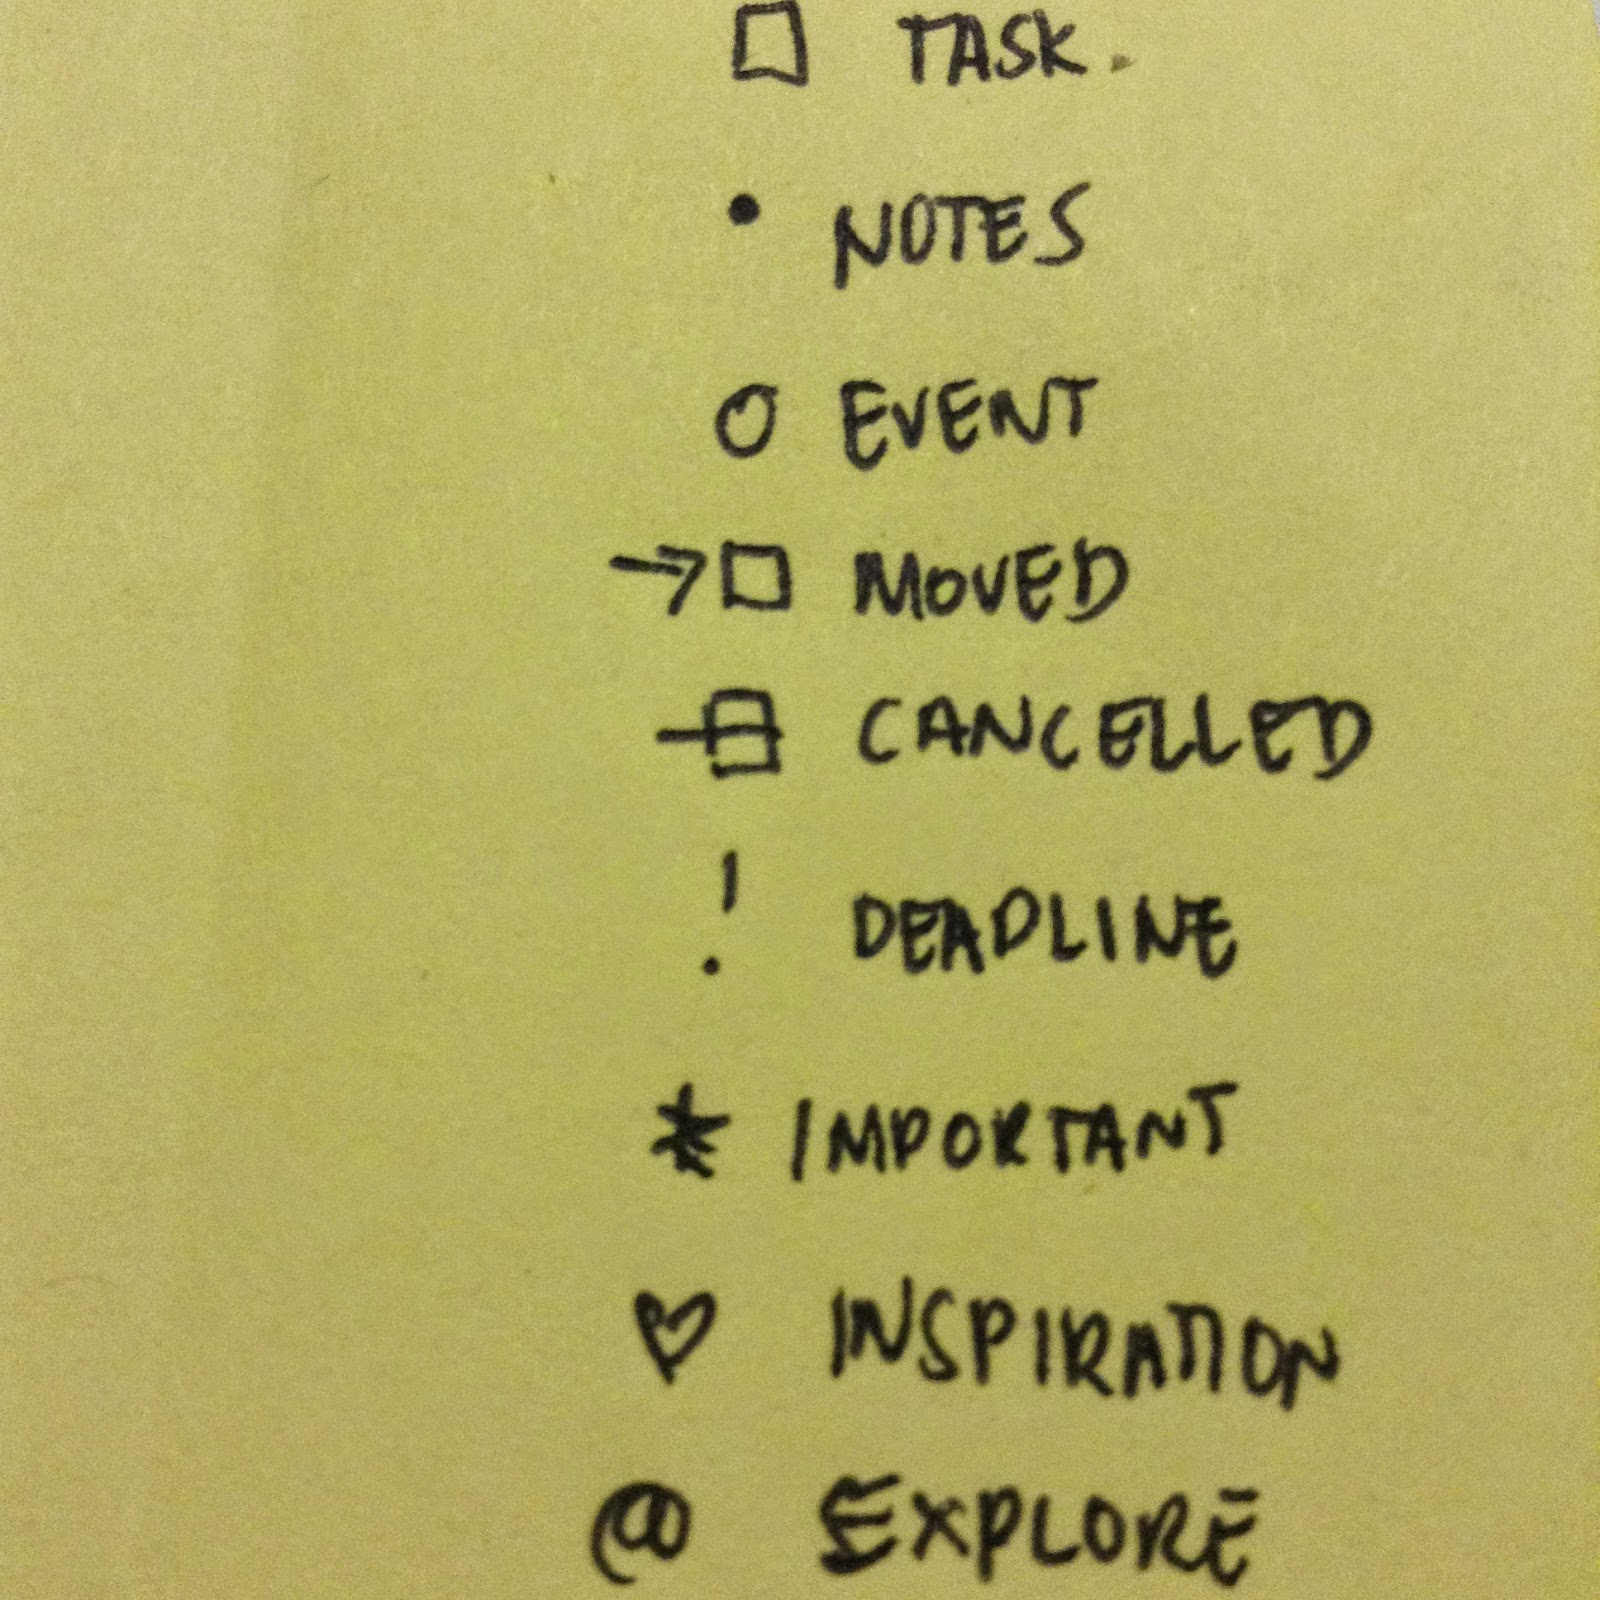 □ TASK.
• NOTES
O EVENT
→□ MOVED
⊟ CANCELLED
! DEADLINE
* IMPORTANT
♡ INSPIRATION
@ EXPLORE